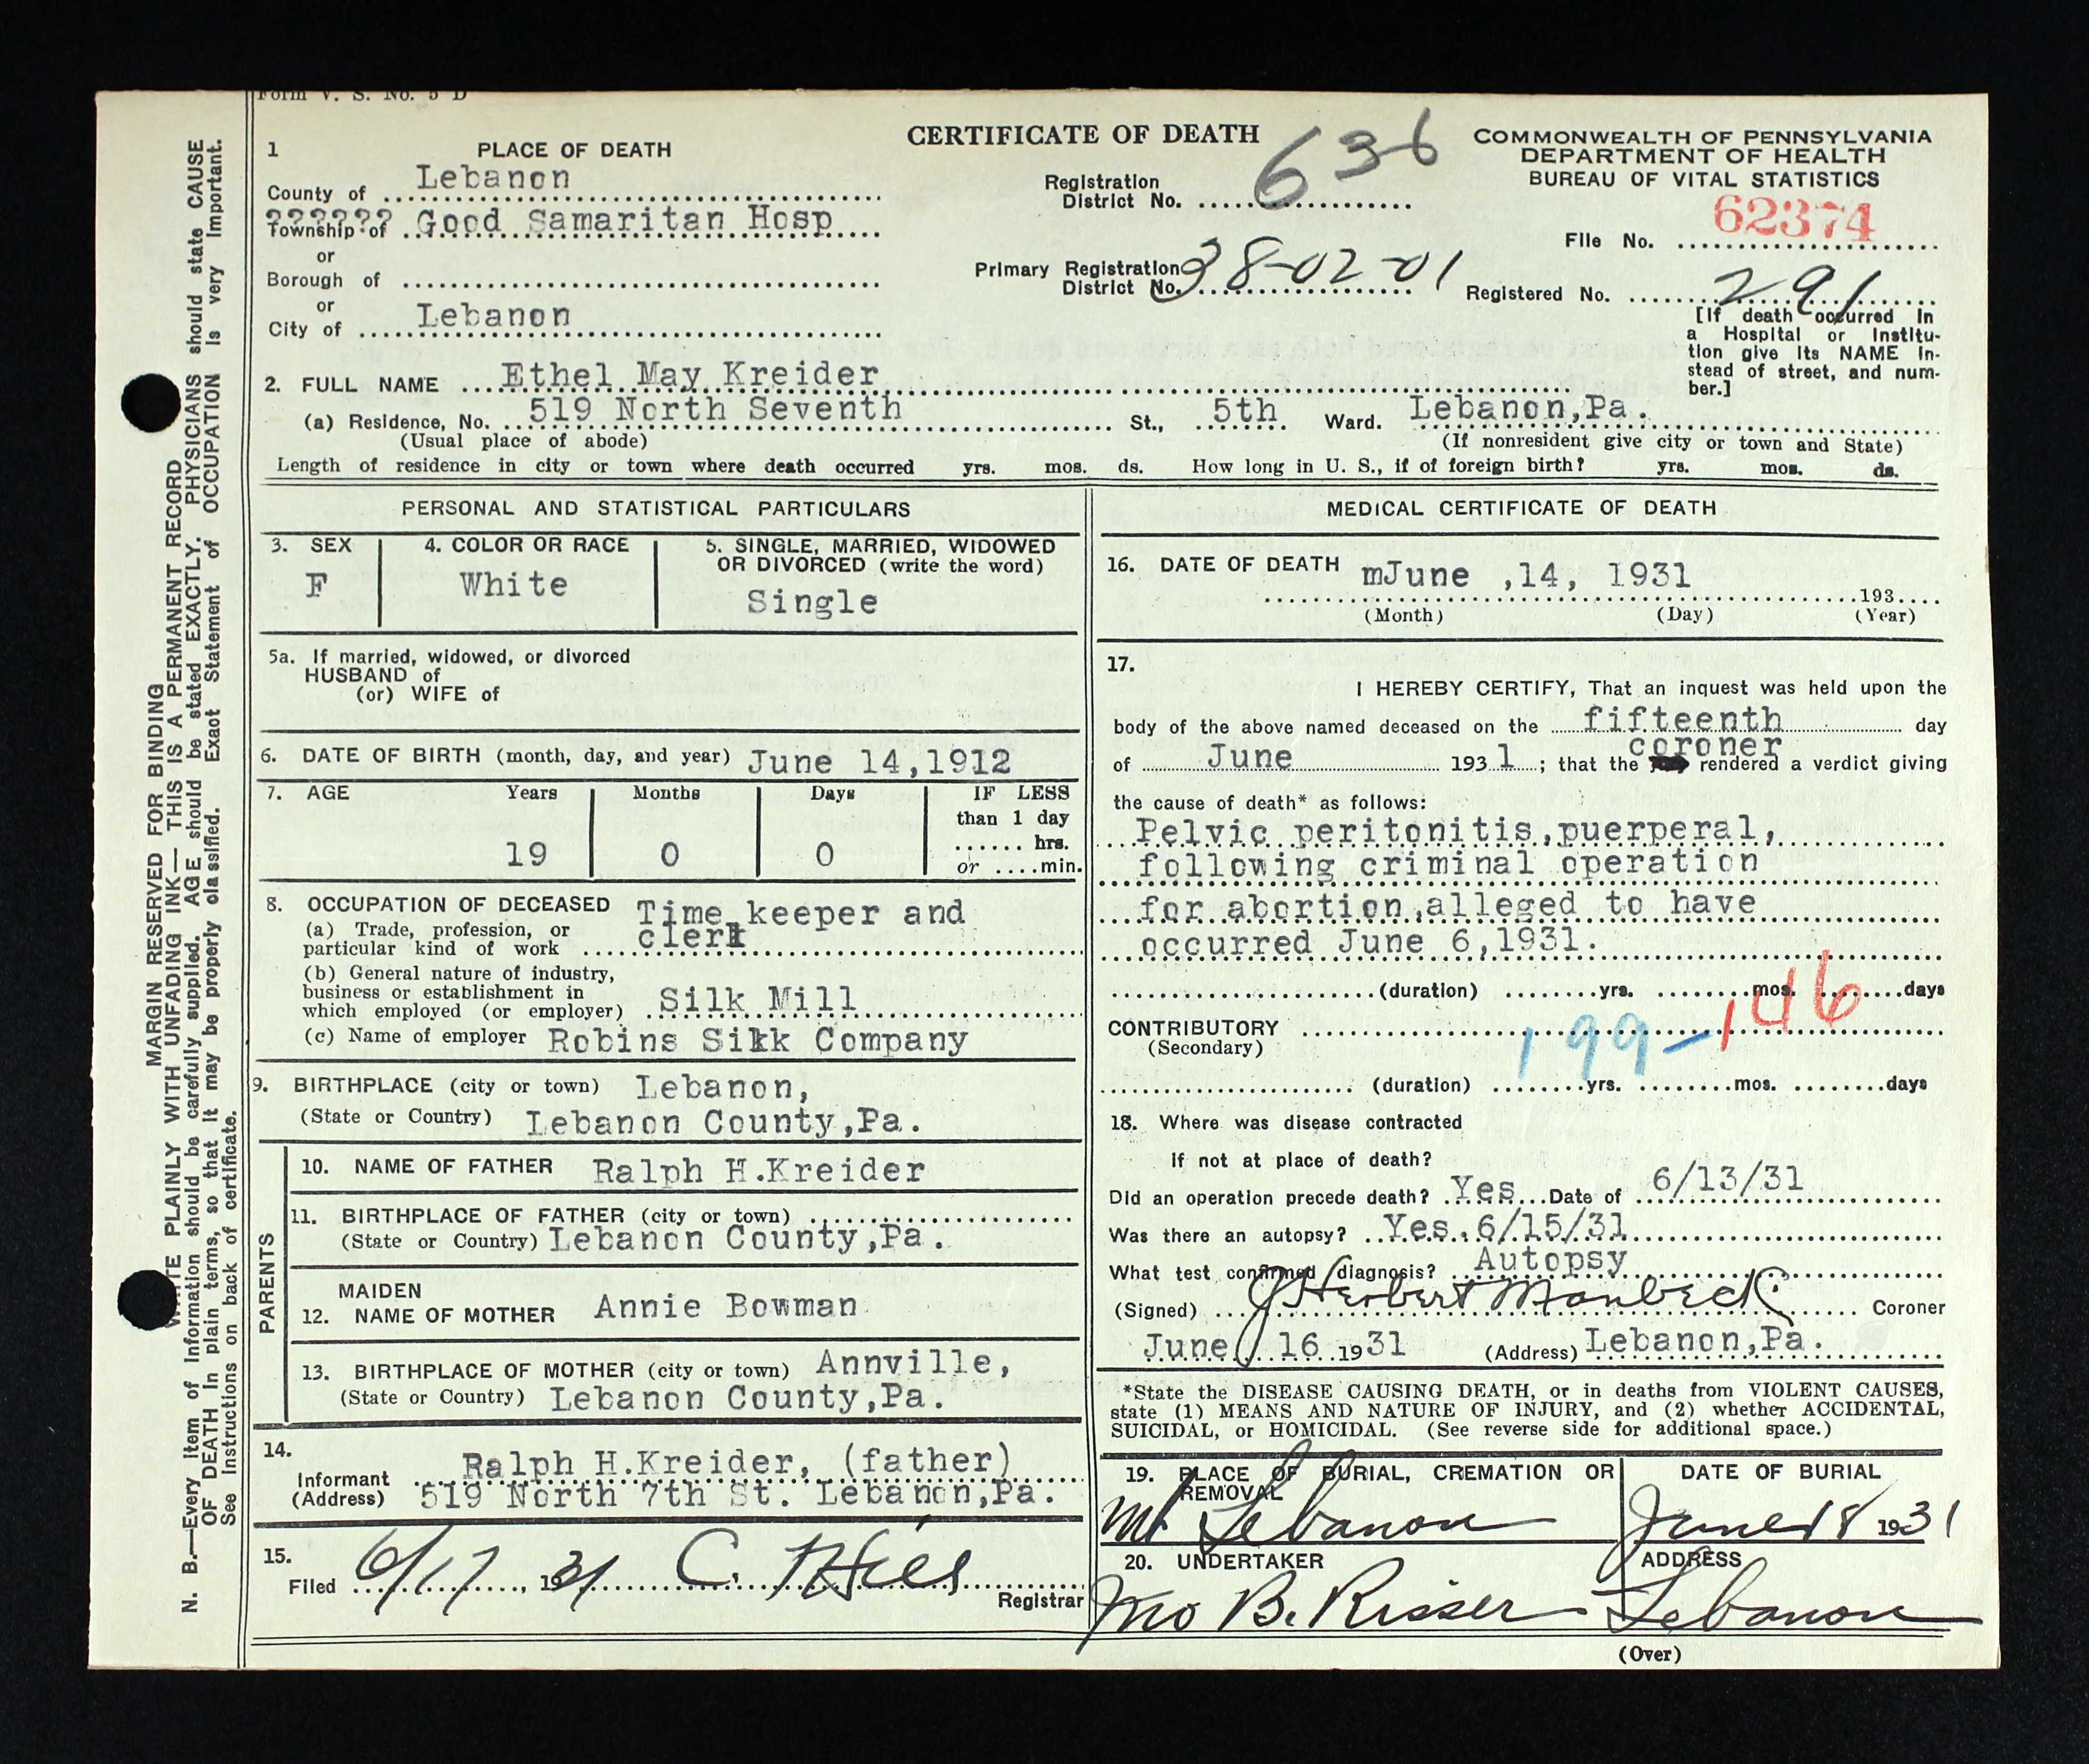 Form V. S. No. 5 D
CERTIFICATE OF DEATH
COMMONWEALTH OF PENNSYLVANIA
DEPARTMENT OF HEALTH
BUREAU OF VITAL STATISTICS
1 PLACE OF DEATH
County of Lebanon
?????? Township of Good Samaritan Hosp
or
Borough of
or
City of Lebanon
Registration District No. 636
Primary Registration District No. 38-02-01
File No. 62374
Registered No. 291
[If death occurred in
a Hospital or Institu-
tion give its NAME in-
stead of street, and num-
ber.]
2. FULL NAME Ethel May Kreider
(a) Residence, No. 519 North Seventh St., 5th Ward. Lebanon,Pa.
(Usual place of abode) (If nonresident give city or town and State)
Length of residence in city or town where death occurred yrs. mos. ds. How long in U. S., if of foreign birth? yrs. mos. ds.
PERSONAL AND STATISTICAL PARTICULARS
3. SEX
F
4. COLOR OR RACE
White
5. SINGLE, MARRIED, WIDOWED
OR DIVORCED (write the word)
Single
5a. If married, widowed, or divorced
HUSBAND of
(or) WIFE of
6. DATE OF BIRTH (month, day, and year) June 14,1912
7. AGE Years Months Days IF LESS
than 1 day
19 0 0 ...... hrs.
or ....min.
8. OCCUPATION OF DECEASED
(a) Trade, profession, or
particular kind of work
Time keeper and
clerk
(b) General nature of industry,
business or establishment in
which employed (or employer) Silk Mill
(c) Name of employer Robins Silk Company
9. BIRTHPLACE (city or town) Lebanon,
(State or Country) Lebanon County,Pa.
PARENTS
10. NAME OF FATHER Ralph H.Kreider
11. BIRTHPLACE OF FATHER (city or town)
(State or Country) Lebanon County,Pa.
MAIDEN
12. NAME OF MOTHER Annie Bowman
13. BIRTHPLACE OF MOTHER (city or town) Annville,
(State or Country) Lebanon County,Pa.
14.
Informant Ralph H.Kreider, (father)
(Address) 519 North 7th St. Lebanon,Pa.
15.
Filed 6/17, 1931 C. Hiel Registrar
MEDICAL CERTIFICATE OF DEATH
16. DATE OF DEATH mJune ,14, 1931
193....
(Month) (Day) (Year)
17.
I HEREBY CERTIFY, That an inquest was held upon the
body of the above named deceased on the fifteenth day
coroner
of June 1931; that the rendered a verdict giving
the cause of death* as follows:
Pelvic peritonitis,puerperal,
following criminal operation
for abortion,alleged to have
occurred June 6,1931.
(duration) yrs. mos. days
CONTRIBUTORY
(Secondary)
199-146
(duration) yrs. mos. days
18. Where was disease contracted
If not at place of death?
Did an operation precede death? Yes Date of 6/13/31
Was there an autopsy? Yes. 6/15/31
What test confirmed diagnosis? Autopsy
(Signed) J Herbert Manbeck Coroner
June 16 1931 (Address) Lebanon,Pa.
*State the DISEASE CAUSING DEATH, or in deaths from VIOLENT CAUSES,
state (1) MEANS AND NATURE OF INJURY, and (2) whether ACCIDENTAL,
SUICIDAL, or HOMICIDAL. (See reverse side for additional space.)
19. PLACE OF BURIAL, CREMATION OR
REMOVAL
Mt Lebanon
DATE OF BURIAL
June 18 1931
20. UNDERTAKER
Jno B. Risser
ADDRESS
Lebanon
(Over)
MARGIN RESERVED FOR BINDING
WRITE PLAINLY WITH UNFADING INK— THIS IS A PERMANENT RECORD
N. B.—Every item of information should be carefully supplied. AGE should be stated EXACTLY. PHYSICIANS should state CAUSE
OF DEATH in plain terms, so that it may be properly classified. Exact Statement of OCCUPATION is very important.
See instructions on back of certificate.